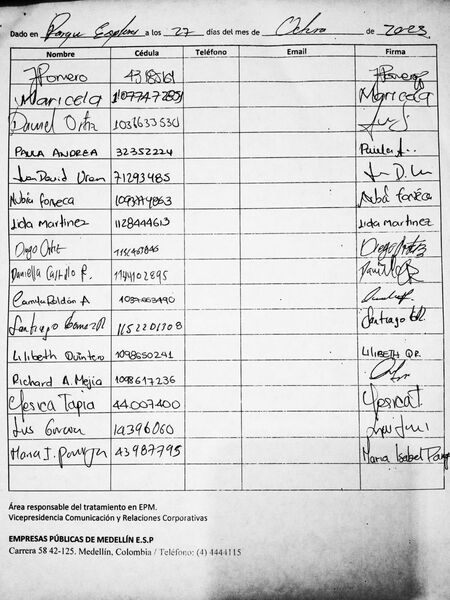 Dado en Parque Explora a los 27 días del mes de Octubre de 2023
Nombre Cédula Teléfono Email Firma
JRomero 4318561 JRomero
Maricela 1107747285 Maricela
Daniel Ortiz 1036633530
PAULA ANDREA 32352224 Paula A..
Juan David Uran 71293485
Nubia fonseca 1093774863 Nubia fonseca
Lida Martinez 1128444613 Lida Martinez
Diego Ortiz Diego Ortiz
Daniella Castillo R. 1144102895
Camila Roldán A 1037663490
Santiago 1152201308 Santiago GR.
Lilibeth Quintero 1098650241 LILIBETH QR.
Richard A. Mejia 1098617236
Yesica Tapia 44.007400 Yesica T
Luis 14396060
Maria I. 43987795 Maria Isabel
Área responsable del tratamiento en EPM.
Vicepresidencia Comunicación y Relaciones Corporativas
EMPRESAS PÚBLICAS DE MEDELLÍN E.S.P
Carrera 58 42-125. Medellín, Colombia / Teléfono: (4) 4444115